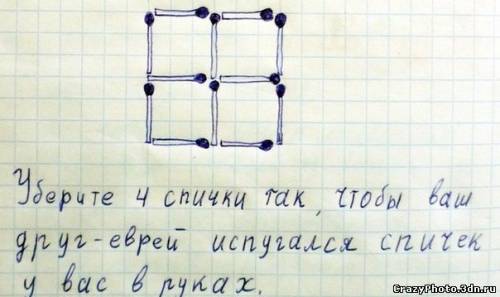 Уберите 4 спички так, чтобы ваш
друг-еврей испугался спичек
у вас в руках.
CrazyPhoto.3dn.ru